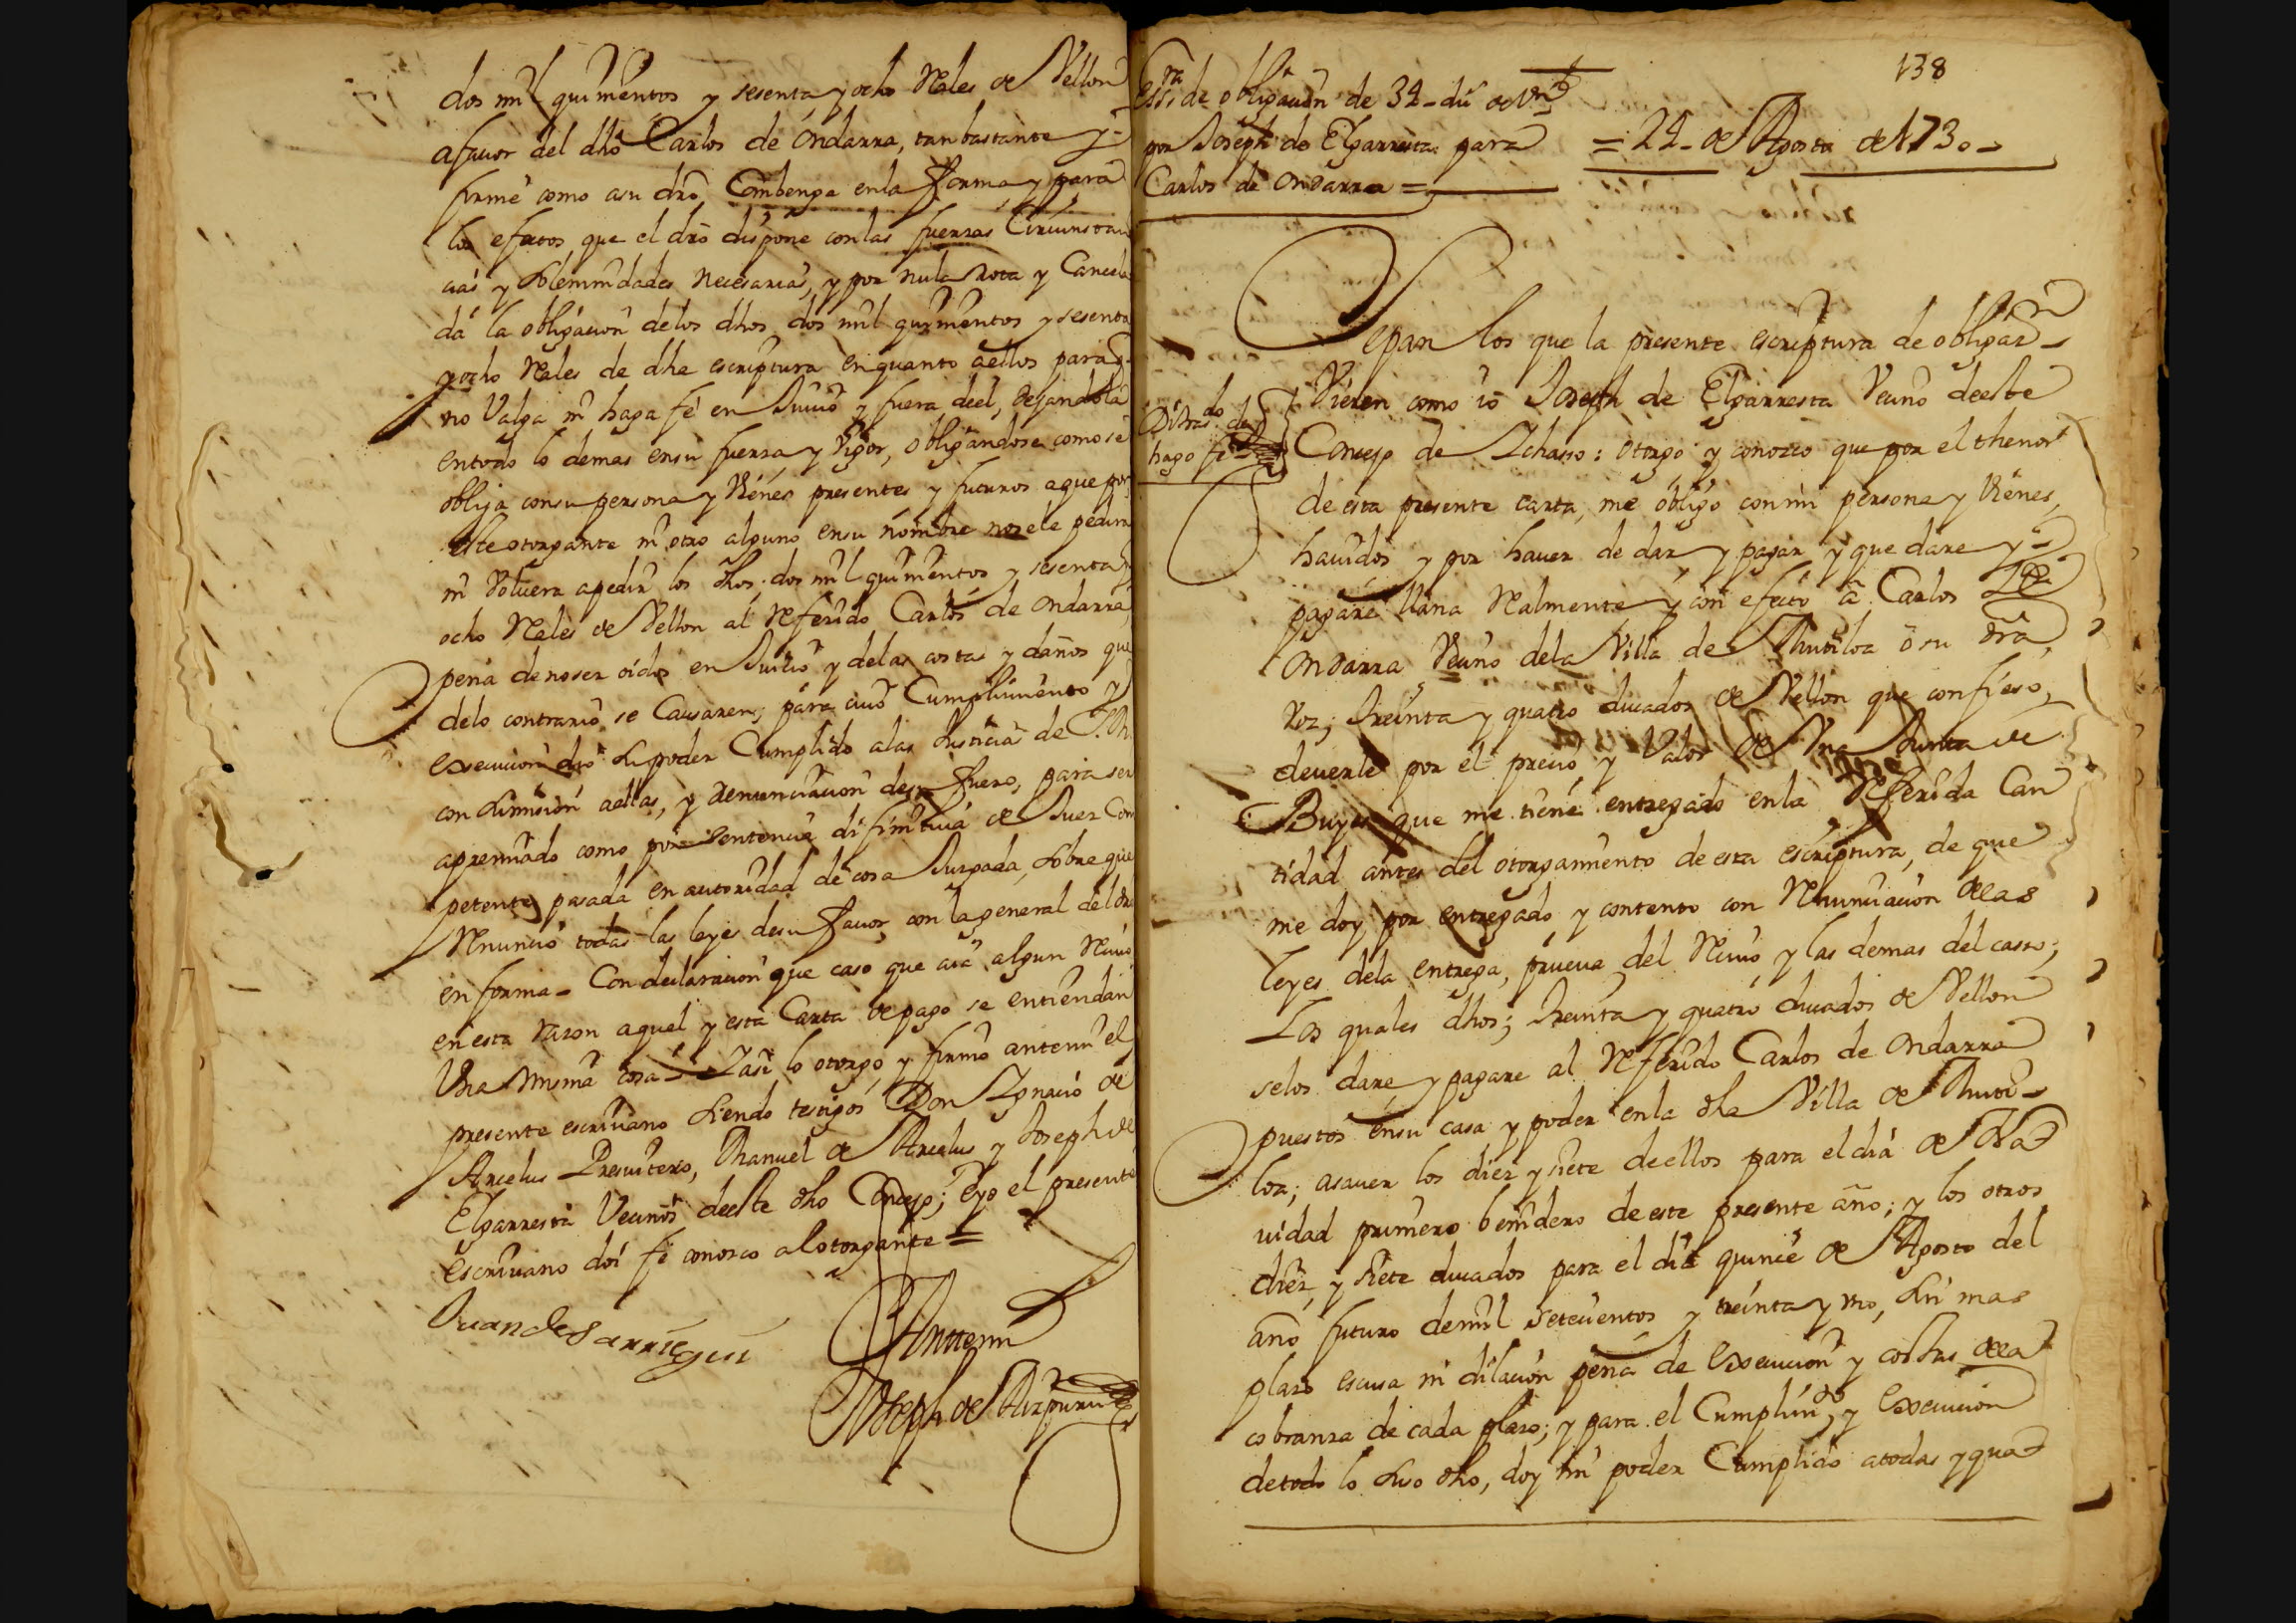 dos mil quinientos y sesenta y ocho Reales de Vellon
afauor del dho Carlos de Ondarra, tan bastante y
firme como asu dro Combenga enla forma y para
los efectos que el dro dispone conlas fuerzas Circunstan
cias y Solemnidades necesarias, y por nula Rota y Cancela
da la obligacion delos dhos dos mil quinientos y sesenta
y ocho Reales de dha escriptura enquanto aellos para q
no Valga ni haga fé en Juicio y fuera deel, dejandola
entodo lo demas ensu fuerza y Vigor, obligandose como se
obliga consu persona y Vienes presentes y futuros aque por
este otorgante ni otro alguno ensu nombre nosele pedira
ni Voluera apedir los dhos dos mil quinientos y sesenta y
ocho Reales de Vellon al Referido Carlos de Ondarra,
pena denoser oidos en Juicio y delas costas y daños que
delo contrario se Causaren; para cuio Cumplimiento y
execucion dio su poder Cumplido alas Justicias de S. M.
con sumision aellas, y Renunciacion desu fuero, para ser
apremiado como por sentencia difinitiua de Juez Com
petente pasada en autoridad de cosa Juzgada, sobre que
Renuncio todas las leyes desu fauor con la general del dro
en forma - Con declaracion que caso que aia algun Reciuo
en esta razon aquel y esta Carta de pago se entiendan
Vna misma cosa = I asi lo otorgo y firmo antemi el
presente escriuano siendo testigos Don Ignacio de
Arcelus Presuitero, Manuel de Arcelus y Joseph de
Elgarresta Vecinos deeste dho Concejo; e yo el presente
escriuano doi fe conozco al otorgante =
Juan de Sarriegui
Antemi
Joseph de Aizpuru
138
Essra de obligacion de 34 du de Vn
por Joseph de Elgarresta para
Carlos de Ondarra =
= 24 - de Agosto de 1730 -
Sepan los que la presente escriptura de obligaon
Vieren como io Joseph de Elgarresta Vecino deeste
Concejo de Ichasso: otorgo y conozco que por el thenor
hago fe
de esta presente carta, me obligo con mi persona y Vienes,
hauidos y por hauer de dar y pagar y que dare y
pagaré llana Realmente y con efecto â Carlos de
Ondarra Vecino dela Villa de Mutiloa ô su dra
Voz; treinta y quatro ducados de Vellon que confieso,
deuerle por el precio y Valor de Vna Junta de
Bueyes que me tiene entregado enla Referida Can
tidad antes del otorgamiento de esta escriptura, de que
me doy por entregado y contento con Renunciacion delas
leyes dela entrega, prueua del Reciuo y las demas del casso;
Los quales dhos; treinta y quatro ducados de Vellon
selos dare y pagare al Referido Carlos de Ondarra
puestos ensu casa y poder enla dha Villa de Muti-
loa; asauer los diez y siete deellos para el dia de Na
uidad primero benidero de este presente año; y los otros
diez y siete ducados para el dia quince de Agosto del
año futuro demil setecientos y treinta y vno, sin mas
plazo escusa ni dilacion pena de execucion y costas dela
cobranza de cada plazo; y para el Cumplimto y execucion
detodo lo suso dho, doy mi poder Cumplido atodas y qua